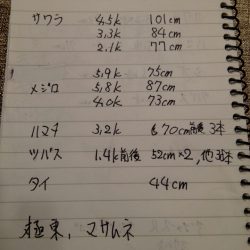 サワラ 4.5k 101cm
3.3k 84cm
2.1k 77cm
5.9k 75cm
メジロ 5.8k 87cm
4.0k 73cm
ハマチ 3.2k 70cm前後 3本
ツバス 1.4k前後 52cm×2, 他3本
タイ 44cm
極東、マサムネ